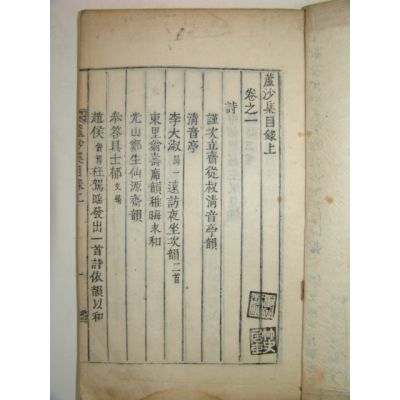 蘆沙集目錄上
卷之一
詩
謹次立齋從叔淸音亭韻
淸音亭
李大淑 遠訪夜坐次韻 二首
東里翁壽席韻稚晦求和
光山鄭生仙源齋韻
奉答具士郁
趙侯 枉駕臨發出一首詩依韻以和
蘆沙集目錄上